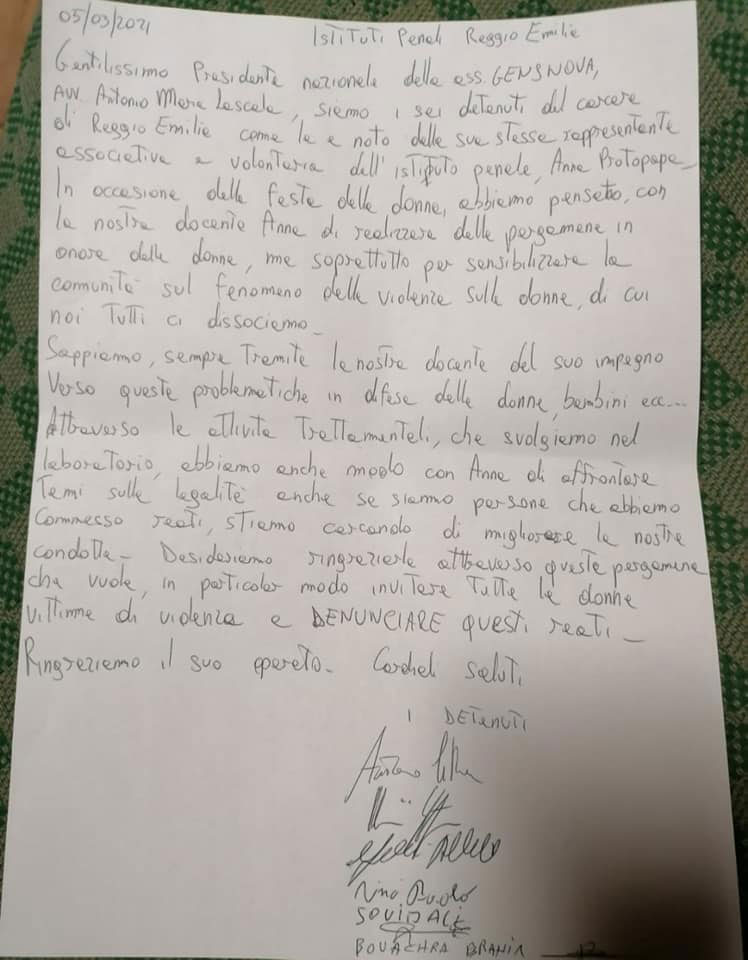 05/03/2021
Istituti Penali Reggio Emilia
Gentilissimo Presidente nazionale della ass. GENSNOVA,
Avv. Antonio Maria Lascala, siamo i sei detenuti del carcere
di Reggio Emilia come le e noto dalla sua stessa rappresentante
associativa e volontaria dell'istituto penale, Anna Protopapa_
In occasione della festa della donna, abbiamo pensato, con
la nostra docente Anna di realizzare delle pergamene in
onore delle donne, ma soprattutto per sensibilizzare la
comunità sul fenomeno della violenza sulle donne, di cui
noi Tutti ci dissociamo_
Sappiamo, sempre Tramite la nostra docente del suo impegno
Verso queste problematiche in difesa delle donne, bambini ecc...
Attraverso le attivita Trattamentali, che svolgiamo nel
laboratorio, abbiamo anche modo con Anna di affrontare
Temi sulla legalità anche se siamo persone che abbiamo
Commesso reati, stiamo cercando di migliorare la nostra
condotta_ Desideriamo ringraziarla attraverso queste pergamene
che vuole, in particolar modo invitare Tutte le donne
vittime di violenza a DENUNCIARE questi reati_
Ringraziamo il suo operato_ Cordiali saluti
I DETENUTI
Nino Paolo
BOUACHRA BRAHIM